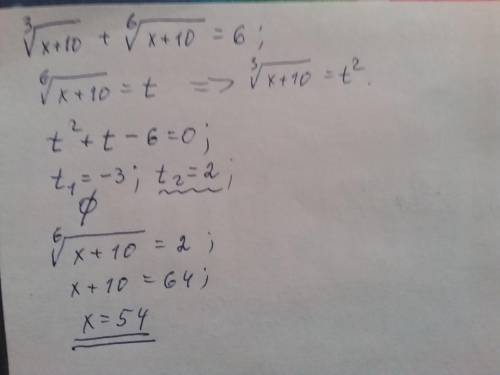 ∛(x+10) + ⁶√(x+10) = 6;
⁶√(x+10) = t => ∛(x+10) = t².
t² + t - 6 = 0;
t₁ = -3; t₂ = 2;
∅
⁶√(x+10) = 2;
x+10 = 64;
x = 54